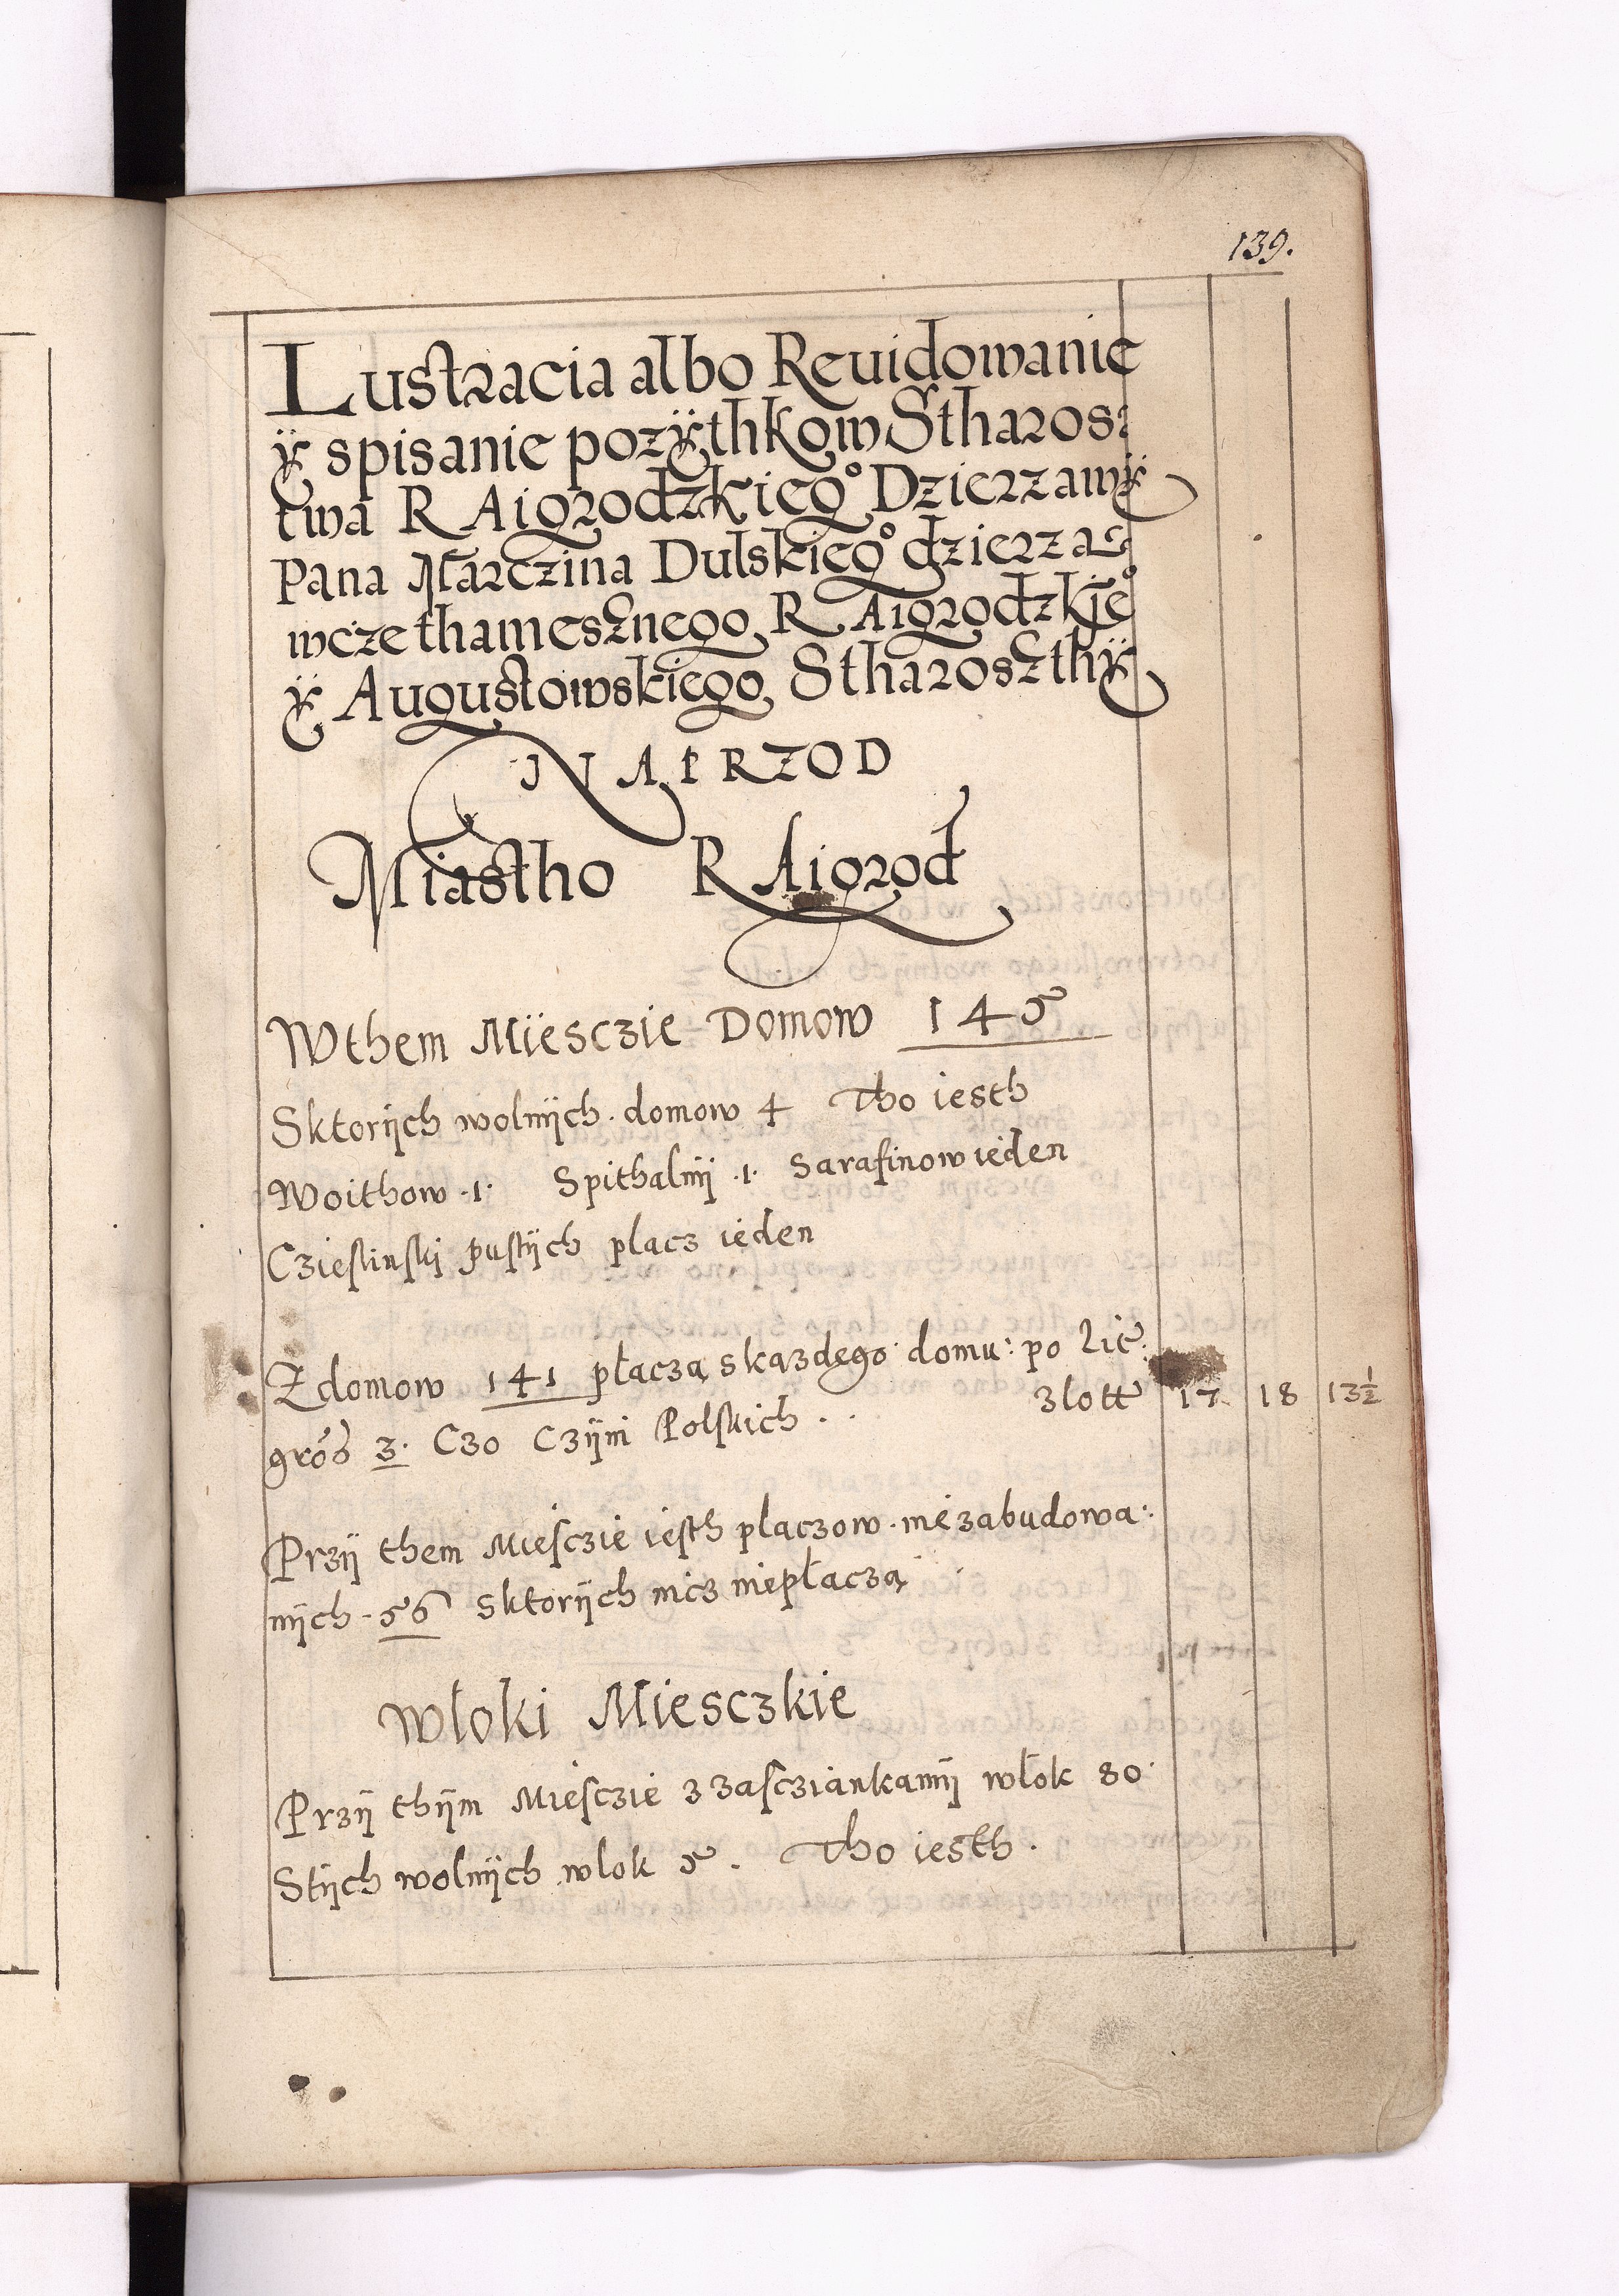 139.
Lustracia albo Reuidowanie
ÿ spisanie pozÿthkow Stharos:
twa RAigrodzkieg° Dzierzawÿ
Pana Marczina Dulskieg° dzierza-
wcze thamesznego, RAigrodzkie°
ÿ Augustowskiego, Stharoszthÿ
NAPRZOD
Miastho RAigrod
Wthem Miesczie Domow 145
Sktorÿch wolnÿch. domow 4 Tho iesth
Woithow .1. Spithalnÿ .1. Sarafinow ieden
Cziestinski pustÿch placz ieden
Zdomow 141 płaczą skazdego domu: po Lit:
gros 3. Czo Czÿni Polskich . . zlott 17 18 13½
Przÿ them Miesczie iesth placzow. niezabudowa:
nÿch - 56 sktorÿch nicz niepłaczą
Włoki Miesczkie
Przÿ thÿm Miesczie z zascziankamÿ włok 80.
Stÿch wolnÿch włok 5. Tho iesth.